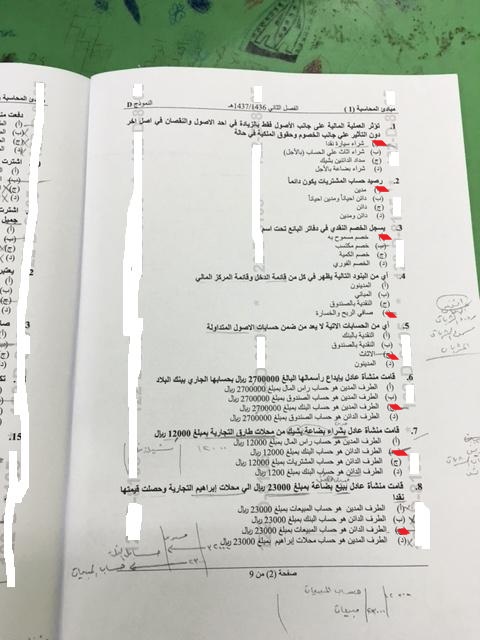 مبادئ المحاسبة (1)
الفصل الثاني 1437/1436هـ
النموذج D
1. تؤثر العملية المالية على جانب الأصول فقط بالزيادة في احد الاصول والنقصان في اصل اخر
دون التأثير على جانب الخصوم وحقوق الملكية في حالة
شراء سيارة نقدا
(ب) شراء اثاث على الحساب (بالأجل)
(ج) سداد الدائنين بشيك
(د) شراء بضاعة بالأجل
2. رصيد حساب المشتريات يكون دائماً
مدين
(ب) دائن احياناً ومدين احياناً
(ج) دائن
(د) دائن ومدين
3. يسجل الخصم النقدي في دفاتر البائع تحت اسم
خصم مسموح به
(ب) خصم مكتسب
(ج) خصم الكمية
(د) الخصم الفوري
4. أي من البنود التالية يظهر في كل من قائمة الدخل وقائمة المركز المالي
(أ) المدينون
(ب) المباني
(ج) النقدية بالصندوق
صافي الربح والخسارة
5. أي من الحسابات الاتية لا يعد من ضمن حسابات الاصول المتداولة
(أ) النقدية بالبنك
(ب) النقدية بالصندوق
(ج) الاثاث
(د) المدينون
6. قامت منشأة عادل بإيداع رأسمالها البالغ 2700000 ريال بحسابها الجاري ببنك البلاد
(أ) الطرف المدين هو حساب راس المال بمبلغ 2700000 ريال
(ب) الطرف المدين هو حساب الصندوق بمبلغ 2700000 ريال
الطرف المدين هو حساب البنك بمبلغ 2700000 ريال
(د) الطرف الدائن هو حساب الصندوق بمبلغ 2700000 ريال
7. قامت منشأة عادل بشراء بضاعة بشيك من محلات طارق التجارية بمبلغ 12000 ريال
(أ) الطرف المدين هو حساب راس المال بمبلغ 12000 ريال
الطرف الدائن هو حساب البنك بمبلغ 12000 ريال
(ج) الطرف الدائن هو حساب المشتريات بمبلغ 12000 ريال
(د) الطرف الدائن هو حساب البنك بمبلغ 1200 ريال
8. قامت منشأة عادل ببيع بضاعة بمبلغ 23000 ريال الي محلات إبراهيم التجارية وحصلت قيمتها
نقدا
(أ) الطرف المدين هو حساب المبيعات بمبلغ 23000 ريال
(ب) الطرف الدائن هو حساب البنك بمبلغ 23000 ريال
الطرف الدائن هو حساب المبيعات بمبلغ 23000 ريال
(د) الطرف المدين هو حساب محلات إبراهيم بمبلغ 23000 ريال
صفحة (2) من 9